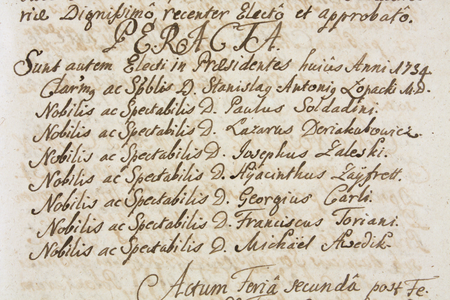 riæ Dignissimô, recenter Electô et approbatô.
PERACTA.
Sunt autem Electi in Præsidentes huiûs Anni 1734
ac Spblis D. Stanislaỹ Antoniỹ Łopacki
Nobilis ac Spectabilis D. Paulus Soldadini.
Nobilis ac Spectabilis D. Lazarus Deriakubowicz.
Nobilis ac Spectabilis D. Josephus Zaleski.
Nobilis ac Spectabilis D. Hyacinthus Zaÿfrett.
Nobilis ac Spectabilis D. Georgius Carli.
Nobilis ac Spectabilis D. Franciscus Toriani.
Nobilis ac Spectabilis D. Michaël Awedik.
Actum Feriâ secundâ post Fe-